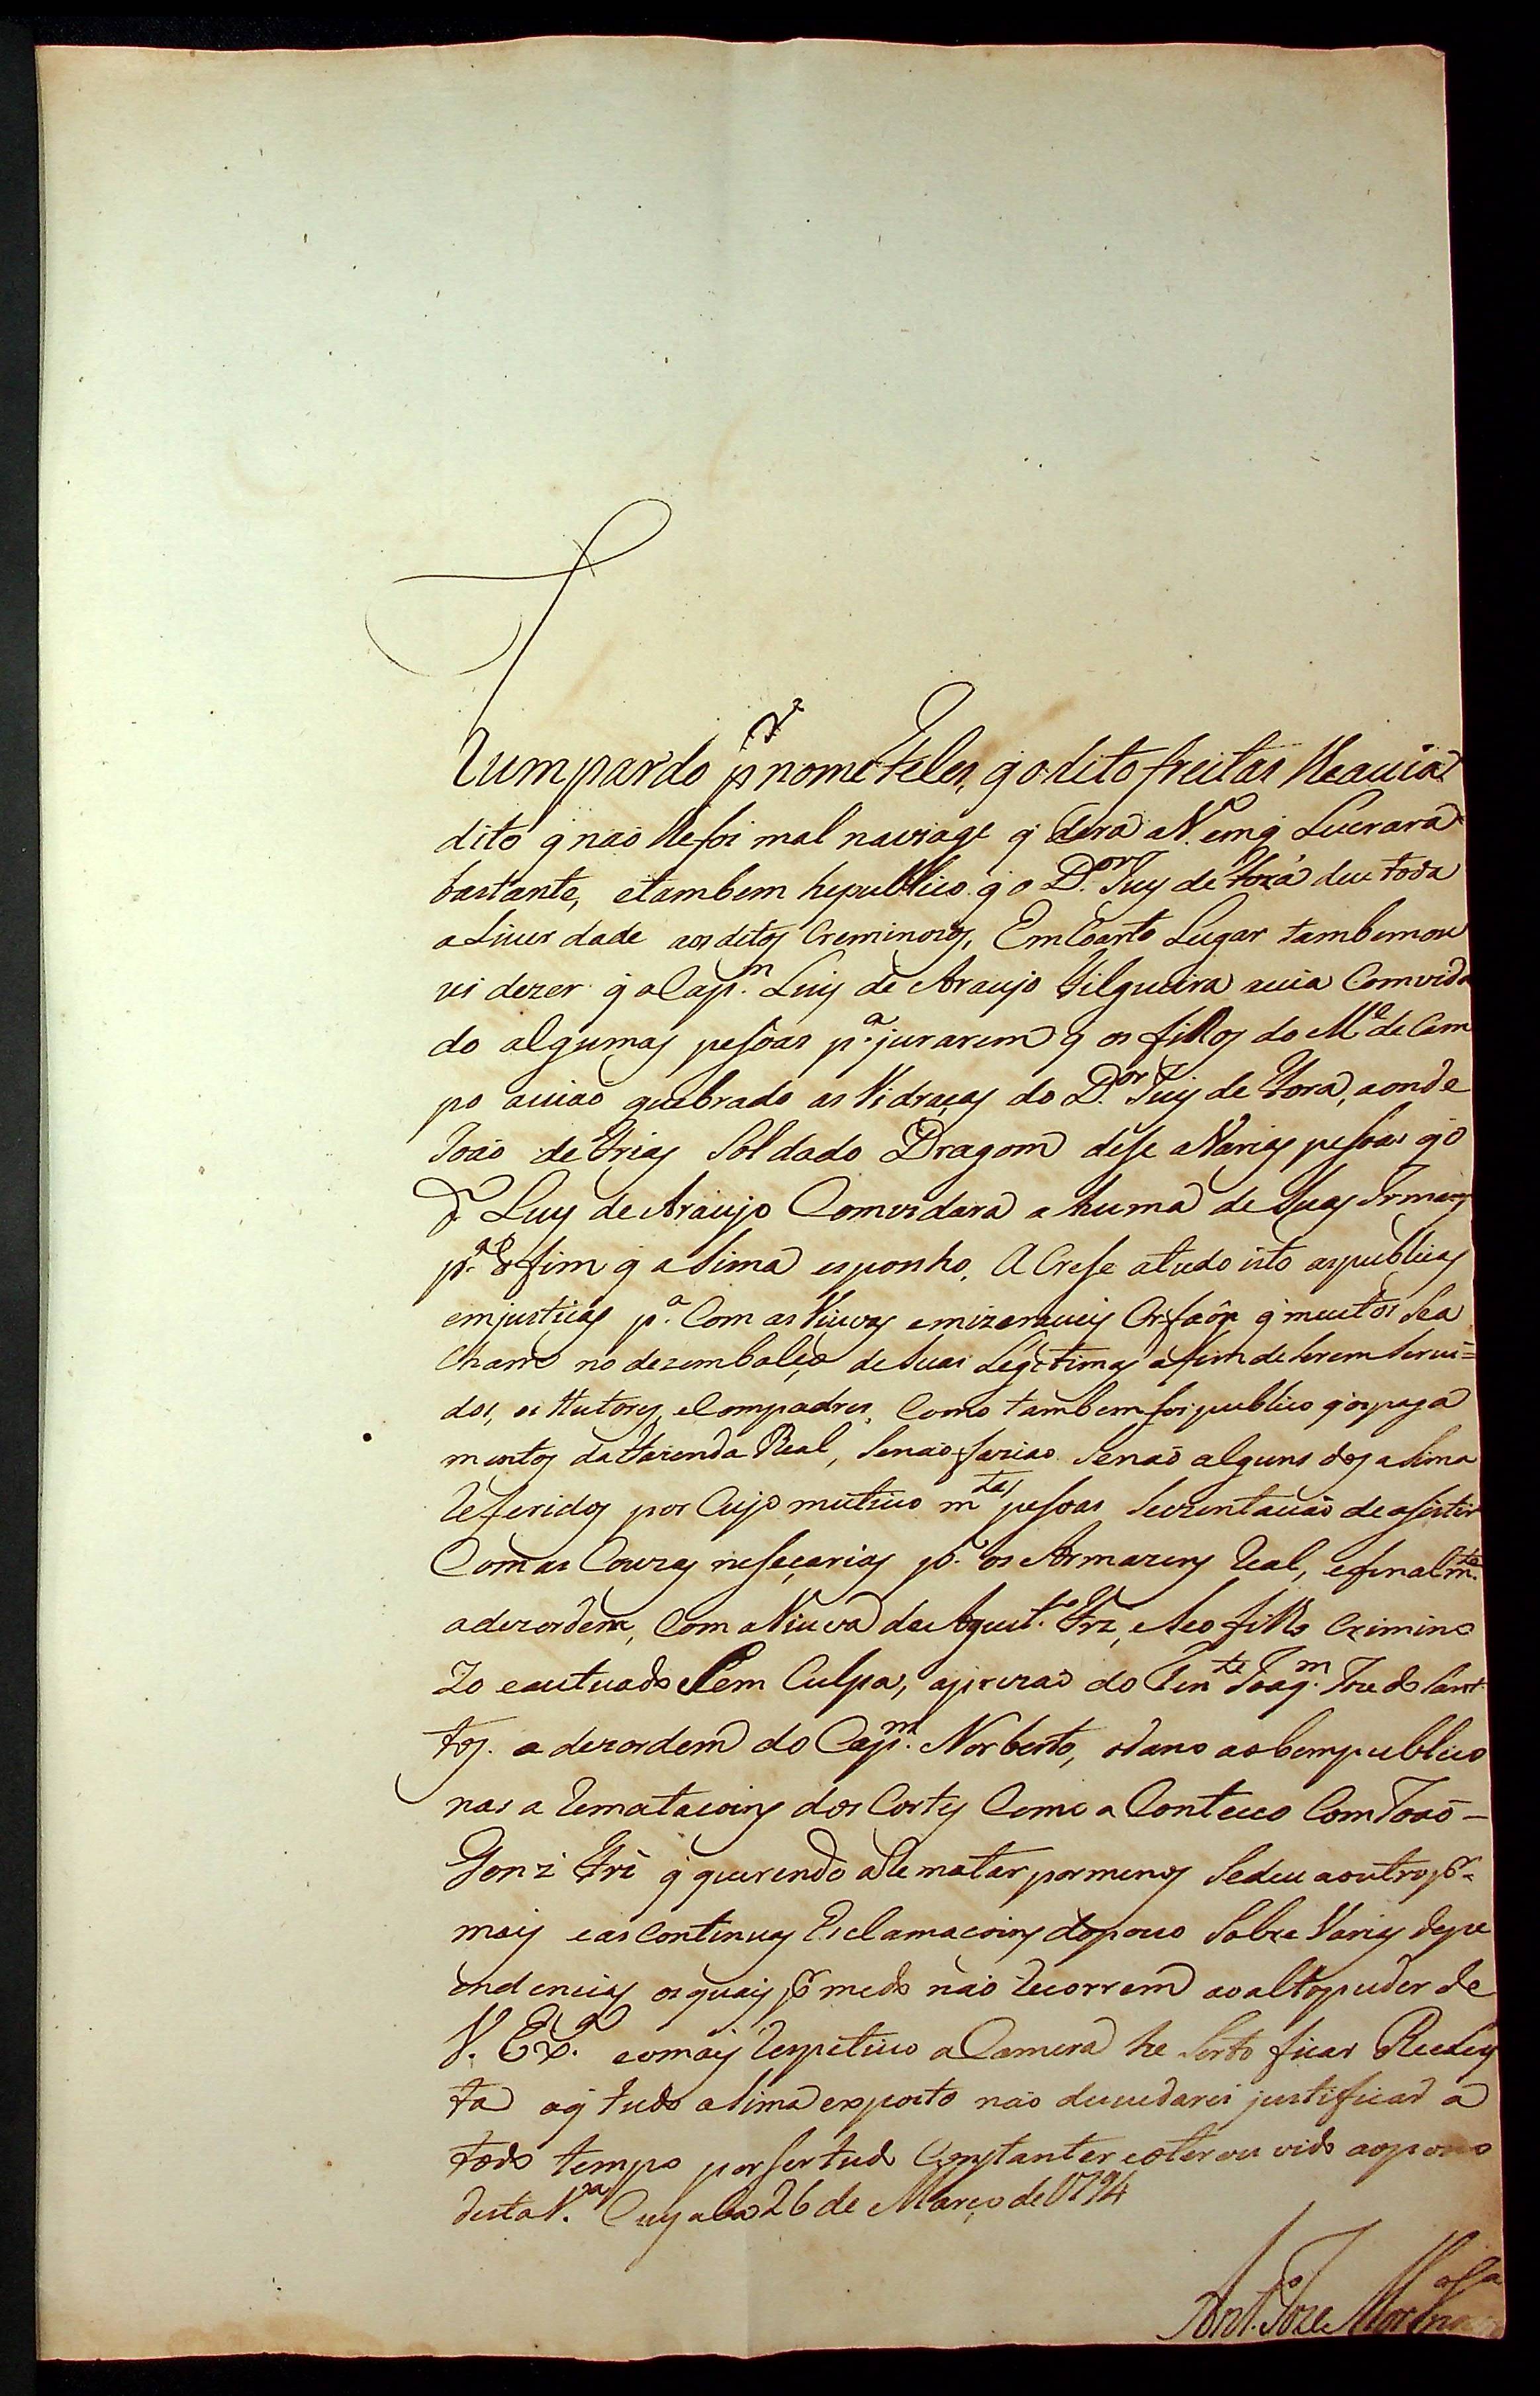 hum pardo pr nome Teles, q̃ o dito freitas lhe avia
dito q̃ não lhe foi mal naviage q̃ dera a V.ª em q̃ Lucrara
bastante, etambem hepublico q̃ o D.or Juiz de Fora deu toda
aLiverdade aos ditos Creminozos, Em Coarto Lugar tambem ou
vi dezer q̃ o Cap.m Luiz de Araujo Filgueira avia Comvida
do algumas pesoas p.ª jurarem q̃ os filhos do M.e de Cam
po avião quebrado as Vidraças do D.or Juiz de Fora, aonde
João de Frias Soldado Dragom dese a Varias pesoas q̃ o
d.º Luiz de Araujo Comvidara a huma de Suas Irmans
p.ª o fim q̃ a Sima esponho, A Crese atudo isto as publicas
emjustiças p.ª Com as Viuvas e mizeraveis Orfaõs q̃ muitos Sea
chamo no dezembolço de Suas Legitimas afim de Serem Servi=
dos, os tutores, eCompadres, Como tambem foi publico q̃ os paga
mentos da Fazenda Real, Senão fazião Senão alguns dos aSima
Referidos por Cujo mutivo m.tas pesoas Sezentavão de asistir
Com as Couzas nesecarias p.ª os Armazens Real, efinalm.te
adezordem, Com aViuva de Agust.º Frz, eSeo filho Crimino
zo eautuado Sem Culpa, aprizão do Ten.te Joaq.m Joze dos Sant
tos. a dezordem do Cap.m Norberto, odano aobempublico
nas a Rematacoins dos Cortes Como a Conteceo Com João —
Gonz Frz q̃ querendo aRematar por menos Sedeu aoutro pr
mais eas Continuas Esclamacoins dopovo Sobre Varias depe
endencias os quais pr medo não Recorrem ao alto puder de
V. Ex.ª eomais Respetivo aCamera he Serto ficar
ta aq̃ tudo aSima exposto não duvudarei justificar a
todo tempo por Ser tudo Constante e o ter ou vido ao povo
desta V.ª Cuyaba 26 de Março de 1794
Ant.º Joze